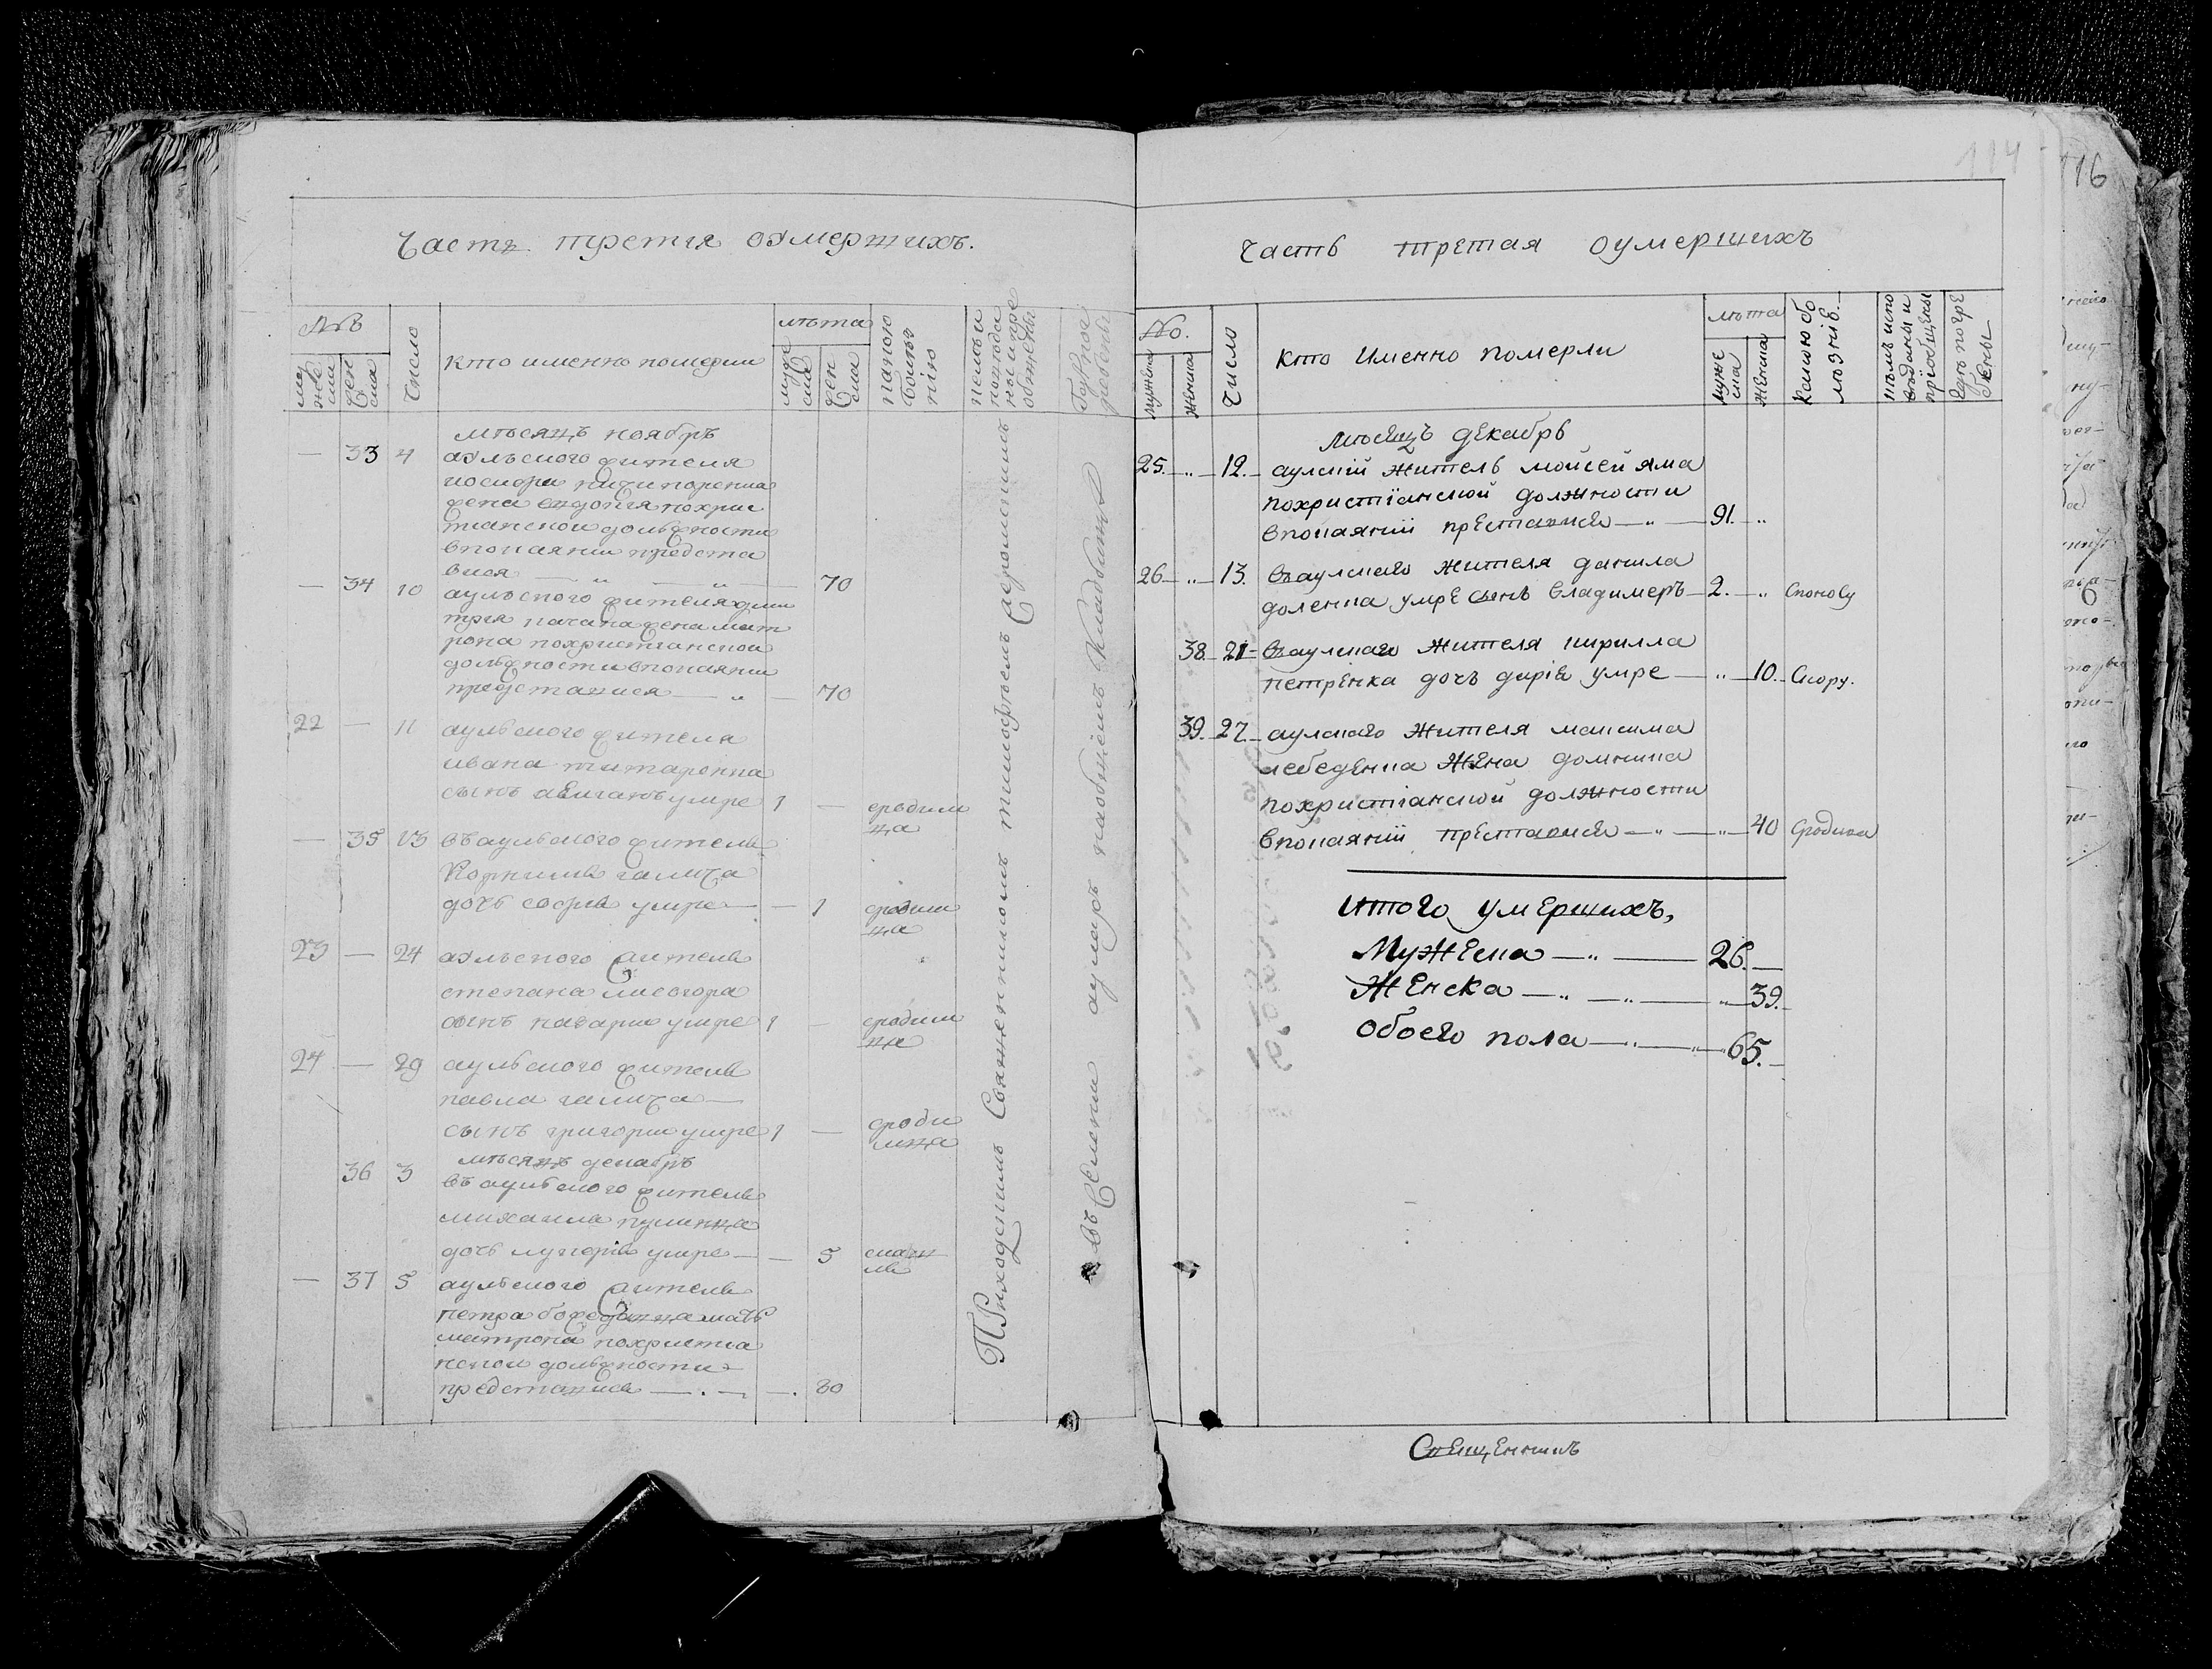 Часть третія оумершихъ.
№ъ
муже
ска
жен
ска
Число
кто именно померли
лѣта
муже
ска
жен
ска
какою
болѣз
нію
мѣсяцъ ноябръ
— 33 4 аулъского жителя
жена евдокія похрис
тианскои должности
впокаянии предста
вися — „ — „ — 70
— 34 10 аулъского жителя дми
трія качана жена мат
рона похристіанской
должности впокаянии
представиса — „ — 70
22 — 11 аульского жителя
ивана титаренка
сынъ умре 1 — сродим
ца
— 35 13 въаульского жителя
Корнилія галича
дочь софія умре — — 1 сродим
ца
23 — 24 аулъского жителя
степана лисогора
сынъ макарии умре 1 — сродим
ца
24 — 29 аульского жителя
павла галича —
сынъ григории умре 1 — сроди
мца
мѣсяцъ декабръ
36 3 въ аульского жителя
михаила
дочь умре — — 5
— 37 5 аульского жителя
петра мать
матрона похристиа
нской должности
представиса — . — — . 80
ПРиходскимъ Священникомъ тимофѣемъ
въ Селении ауларъ наобщемъ кладбищѣ
114
116
Часть третая оумершихъ
No.
Мужска
Женска
Число
кто Именно померли
лѣта
муже
ска
Женска
Какою бо
лѣзнію
кѣмъ испо
вѣданы и
пріобщены
Где погре
бены
Мѣсецъ декабрь
25. „ 12. аулскій житель мойсей яма
похристіанской должности
впокаяній преставися — „ — 91. „
26 — „ 13. въаулскаго жителя данила
доленка умре сынъ владимеръ — 2. „ Спокову
38. 21 = въаулскаго жителя кирилла
петренка дочъ дарія умре — „ — 10. Скору.
39. 27. аулскаго жителя максима
лебеденка жена домника
похристіанской должности
впокаяній преставися — „ — „ — 40 Сродива
Итого умершихъ,
Мужеска — „ — 26. —
Женска — „ — „ — „ 39. —
Обоего пола — „ — „ 65. —
Свещенникъ